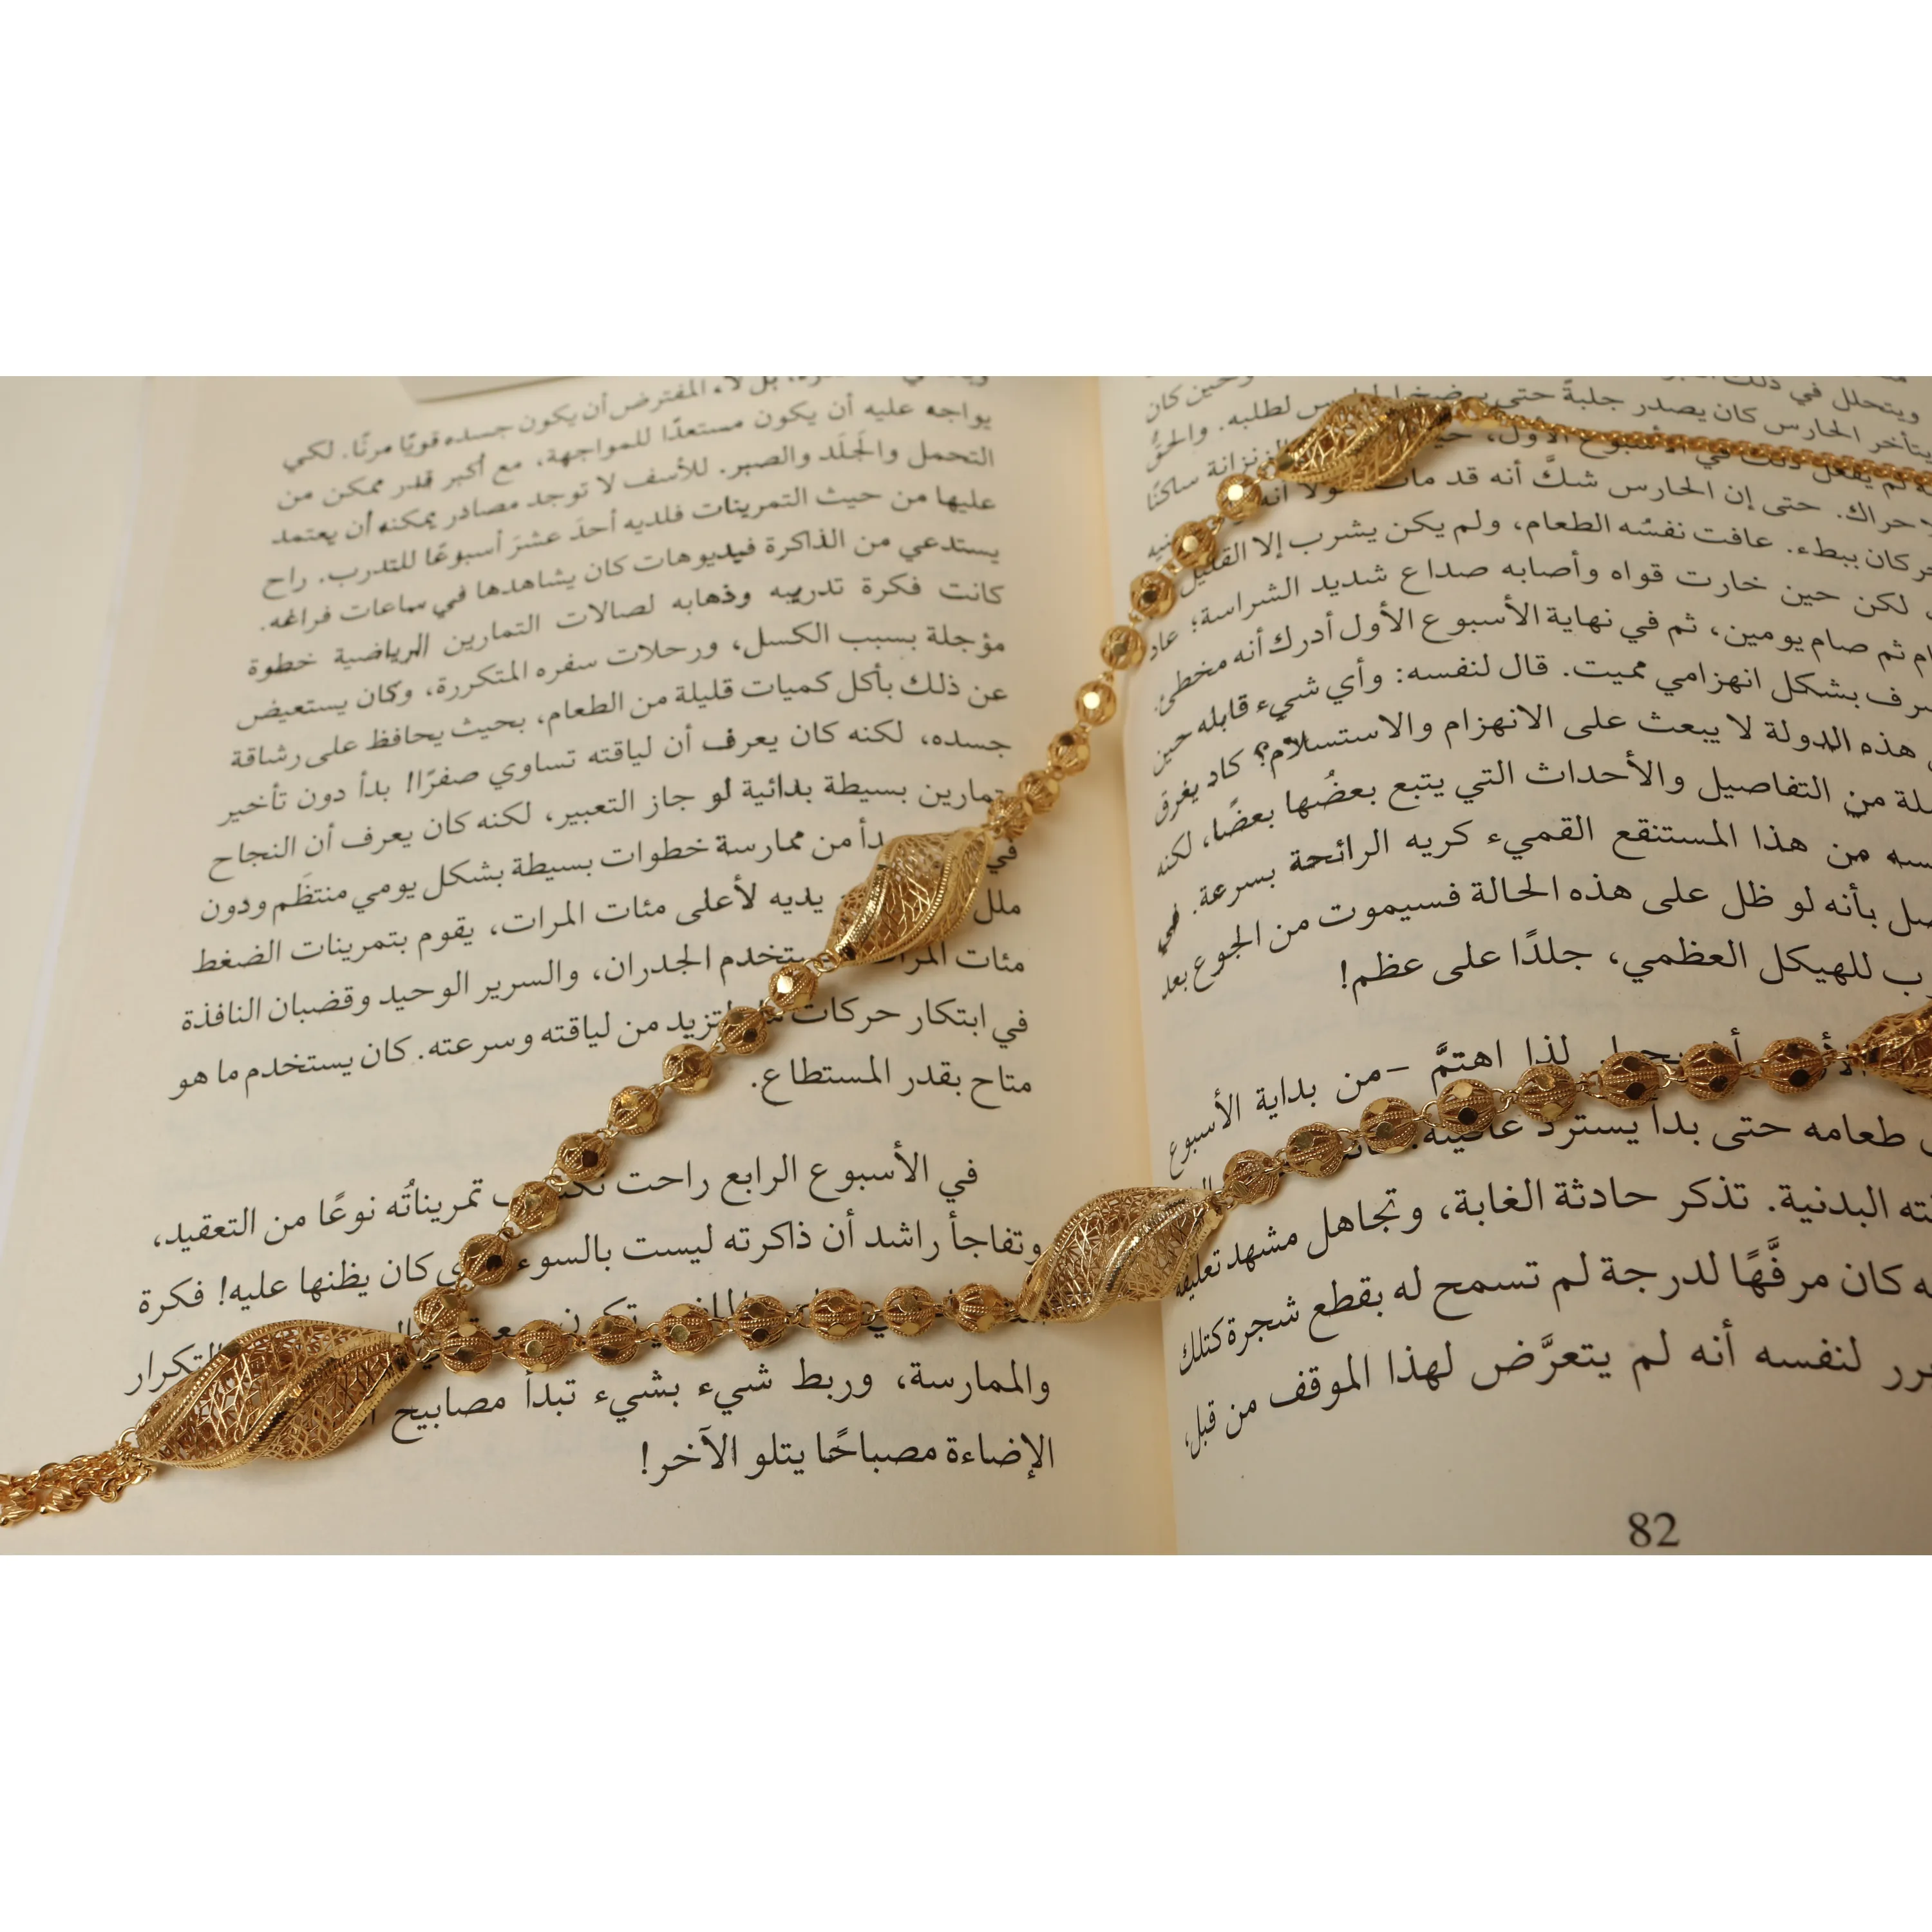 ويتحلل في ذلك
وحين كان
يتأخر الحارس كان يصدر جلبةً حتى
لطلبه. والحقّ
لم يفعل ذلك في الأسبوع الأول،
الزنزانة ساكنًا
حراك. حتى إن الحارس شكَّ أنه قد مات
كان ببطء. عافت نفسُه الطعام، ولم يكن يشرب إلا القليل
لكن حين خارت قواه وأصابه صداع شديد الشراسة؛ عاد
ثم صام يومين، ثم في نهاية الأسبوع الأول أدرك أنه مخطئ،
بشكل انهزامي مميت. قال لنفسه: وأي شيء قابله حين
هذه الدولة لا يبعث على الانهزام والاستسلام؟ كاد يغرق
من التفاصيل والأحداث التي يتبع بعضُها بعضًا، لكنه
من هذا المستنقع القميء كريه الرائحة بسرعة.
بأنه لو ظل على هذه الحالة فسيموت من الجوع بعد
للهيكل العظمي، جلدًا على عظم!
لذا اهتمَّ -من بداية الأسبوع
طعامه حتى بدأ يسترد
البدنية. تذكر حادثة الغابة، وتجاهل مشهد تعليقه
كان مرفَّهًا لدرجة لم تسمح له بقطع شجرة كتلك
لنفسه أنه لم يتعرَّض لهذا الموقف من قبل،
82
المفترض أن يكون جسده قويًا مرنًا. لكي
يواجه عليه أن يكون مستعدًا للمواجهة، مع أكبر قدر ممكن من
التحمل والجَلَد والصبر. للأسف لا توجد مصادر يمكنه أن يعتمد
عليها من حيث التمرينات فلديه أحدَ عشرَ أسبوعًا للتدرب. راح
يستدعي من الذاكرة فيديوهات كان يشاهدها في ساعات فراغه.
كانت فكرة تدريبه وذهابه لصالات التمارين الرياضية خطوة
مؤجلة بسبب الكسل، ورحلات سفره المتكررة، وكان يستعيض
عن ذلك بأكل كميات قليلة من الطعام، بحيث يحافظ على رشاقة
جسده، لكنه كان يعرف أن لياقته تساوي صفرًا! بدأ دون تأخير
بسيطة بدائية لو جاز التعبير، لكنه كان يعرف أن النجاح
في
من ممارسة خطوات بسيطة بشكل يومي منتظَم ودون
ملل
يديه لأعلى مئات المرات، يقوم بتمرينات الضغط
مئات
الجدران، والسرير الوحيد وقضبان النافذة
في ابتكار حركات
لتزيد من لياقته وسرعته. كان يستخدم ما هو
متاح بقدر المستطاع.
في الأسبوع الرابع راحت
تمريناتُه نوعًا من التعقيد،
وتفاجأ راشد أن ذاكرته ليست بالسوء
كان يظنها عليه! فكرة
التكرار
والممارسة، وربط شيء بشيء تبدأ مصابيح
الإضاءة مصباحًا يتلو الآخر!